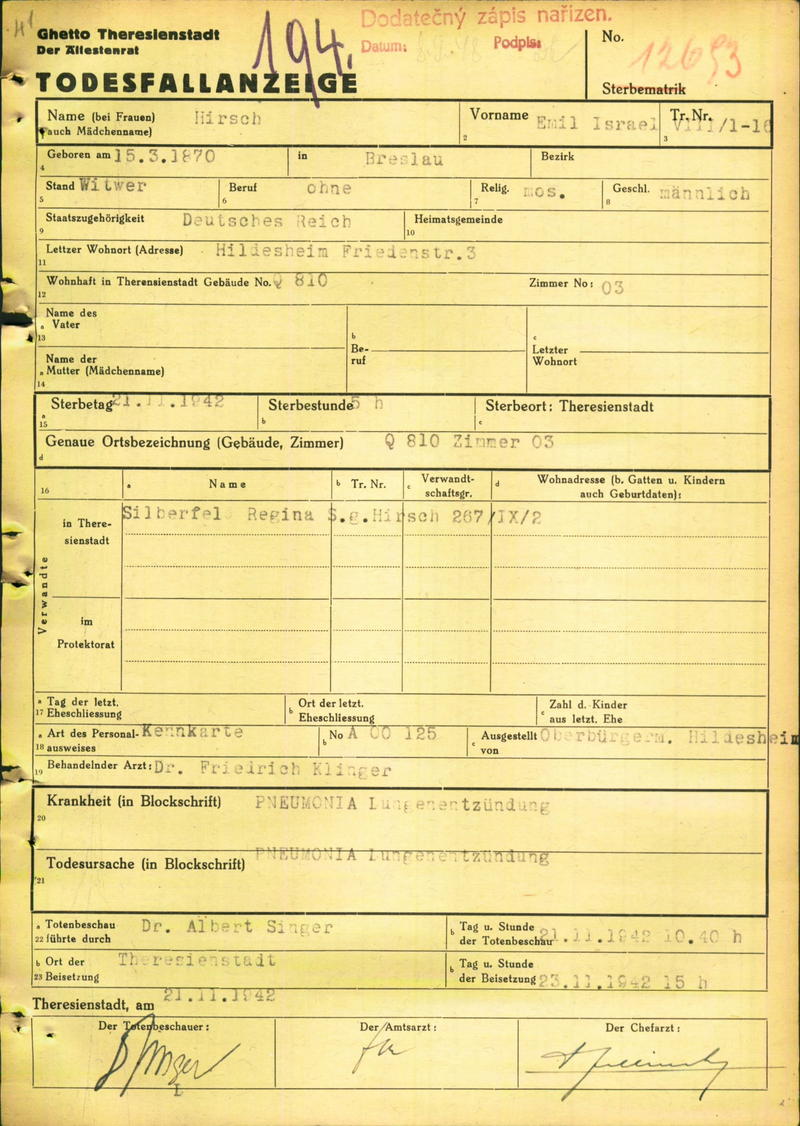 Dodatečný zápis nařízen.
Ghetto Theresienstadt
Der Ältestenrat
194.
Datum:
Podpis:
No.
12653
TODESFALLANZEIGE
Sterbematrik
Name (bei Frauen) Hirsch
auch Mädchenname)
Vorname Emil Israel
2
Tr. Nr. VIII/1-16
3
Geboren am 15.3.1870
4
in Breslau
Bezirk
Stand Witwer
5
Beruf ohne
6
Relig. mos.
7
Geschl. männlich
8
Staatszugehörigkeit Deutsches Reich
9
Heimatsgemeinde
10
Lettzer Wohnort (Adresse) Hildesheim Friedenstr.3
11
Wohnhaft in Therensienstadt Gebäude No. Q 810
12
Zimmer No: 03
Name des
a Vater
13
b
Be-
ruf
c
Letzter
Wohnort
Name der
a Mutter (Mädchenname)
14
Sterbetag 21.11.1942
a
15
Sterbestunde 5 h
b
Sterbeort: Theresienstadt
c
Genaue Ortsbezeichnung (Gebäude, Zimmer) Q 810 Zimmer 03
d
16
a Name
b Tr. Nr.
c Verwandt-
schaftsgr.
d Wohnadresse (b. Gatten u. Kindern
auch Geburtdaten):
Verwandte
in There-
sienstadt
Silberfel Regina S.g.Hirsch 267/IX/2
im
Protektorat
a Tag der letzt.
17 Eheschliessung
b Ort der letzt.
Eheschliessung
c Zahl d. Kinder
aus letzt. Ehe
a Art des Personal- Kennkarte
18 ausweises
b No A 00 125
c Ausgestellt Oberbürgerm. Hildesheim
von
19 Behandelnder Arzt: Dr. Frielrich Klinger
Krankheit (in Blockschrift) PNEUMONIA Lungenentzündung
20
Todesursache (in Blockschrift) PNEUMONIA Lungenentzündung
21
a Totenbeschau Dr. Albert Singer
22 führte durch
b Tag u. Stunde
der Totenbeschau 21.11.1942 10.40 h
b Ort der Theresienstadt
23 Beisetzung
b Tag u. Stunde
der Beisetzung 23.11.1942 15 h
Theresienstadt, am 21.11.1942
Der Totenbeschauer:
Der Amtsarzt:
Der Chefarzt: